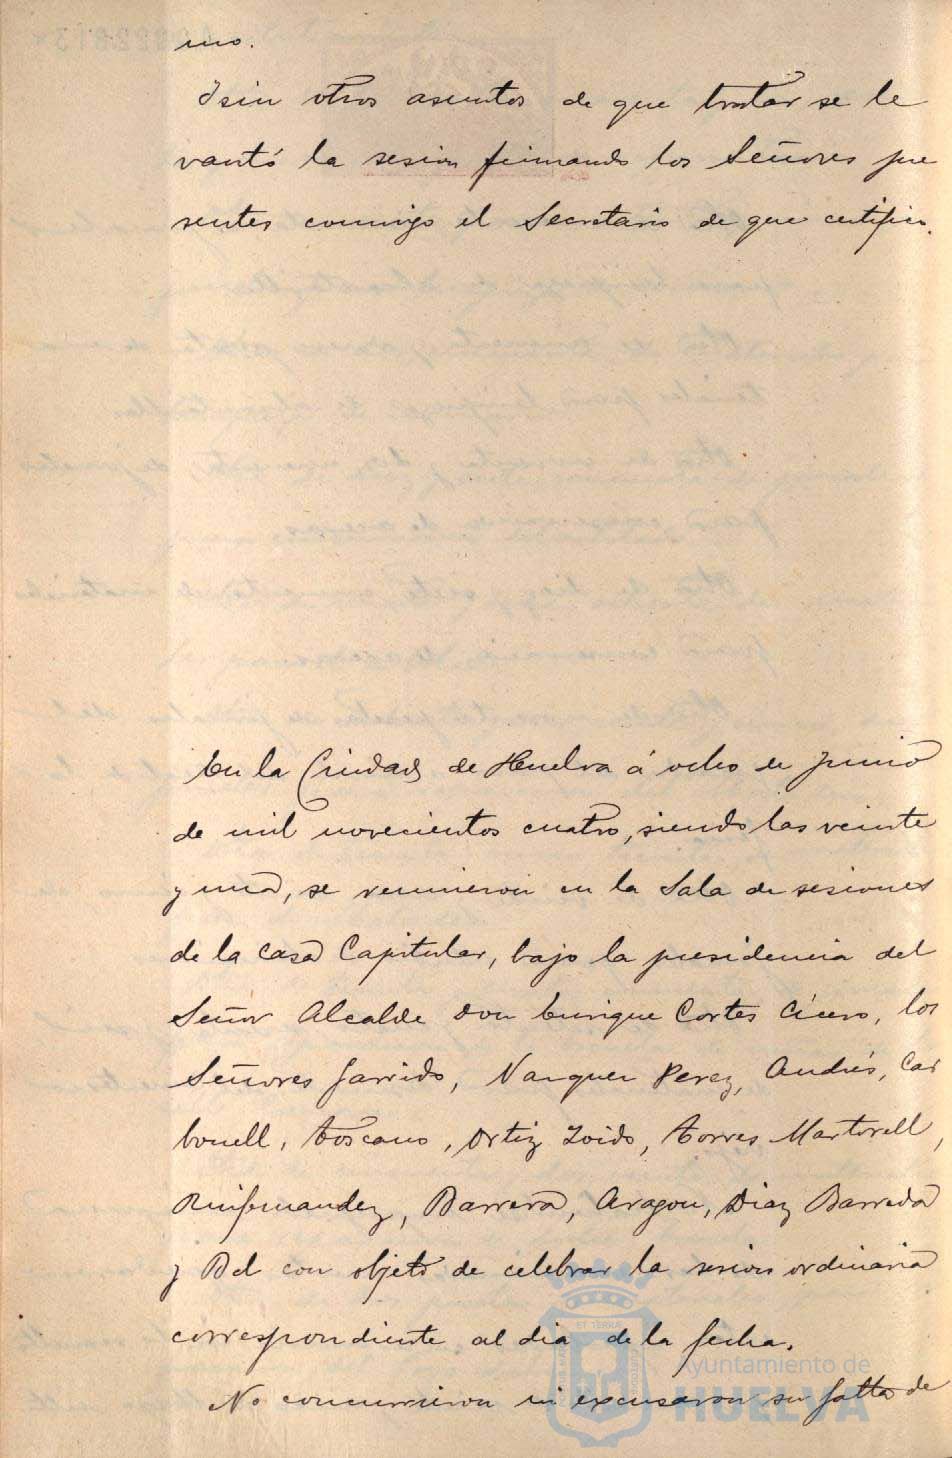 mo.
Y sin otros asuntos de que tratar se le
vantó la sesion firmando los Señores pre
sentes conmigo el Secretario de que certifico.
En la Ciudad de Huelva á ocho de Junio
de mil novecientos cuatro, siendo las veinte
y una, se reunieron en la Sala de sesiones
de la Casa Capitular, bajo la presidencia del
Señor Alcalde Don Enrique Cortes Cícero, los
Señores Garrido, Vazquez Perez, Andrés, Car
bonell, Toscano, Ortiz Zoido, Torres Martorell,
Ruifernandez, Barrera, Aragon, Diaz Barreda
y Bel con objeto de celebrar la sesion ordinaria
correspondiente al dia de la fecha.
No concurrieron ni excusaron su falta de
Ayuntamiento de
HUELVA